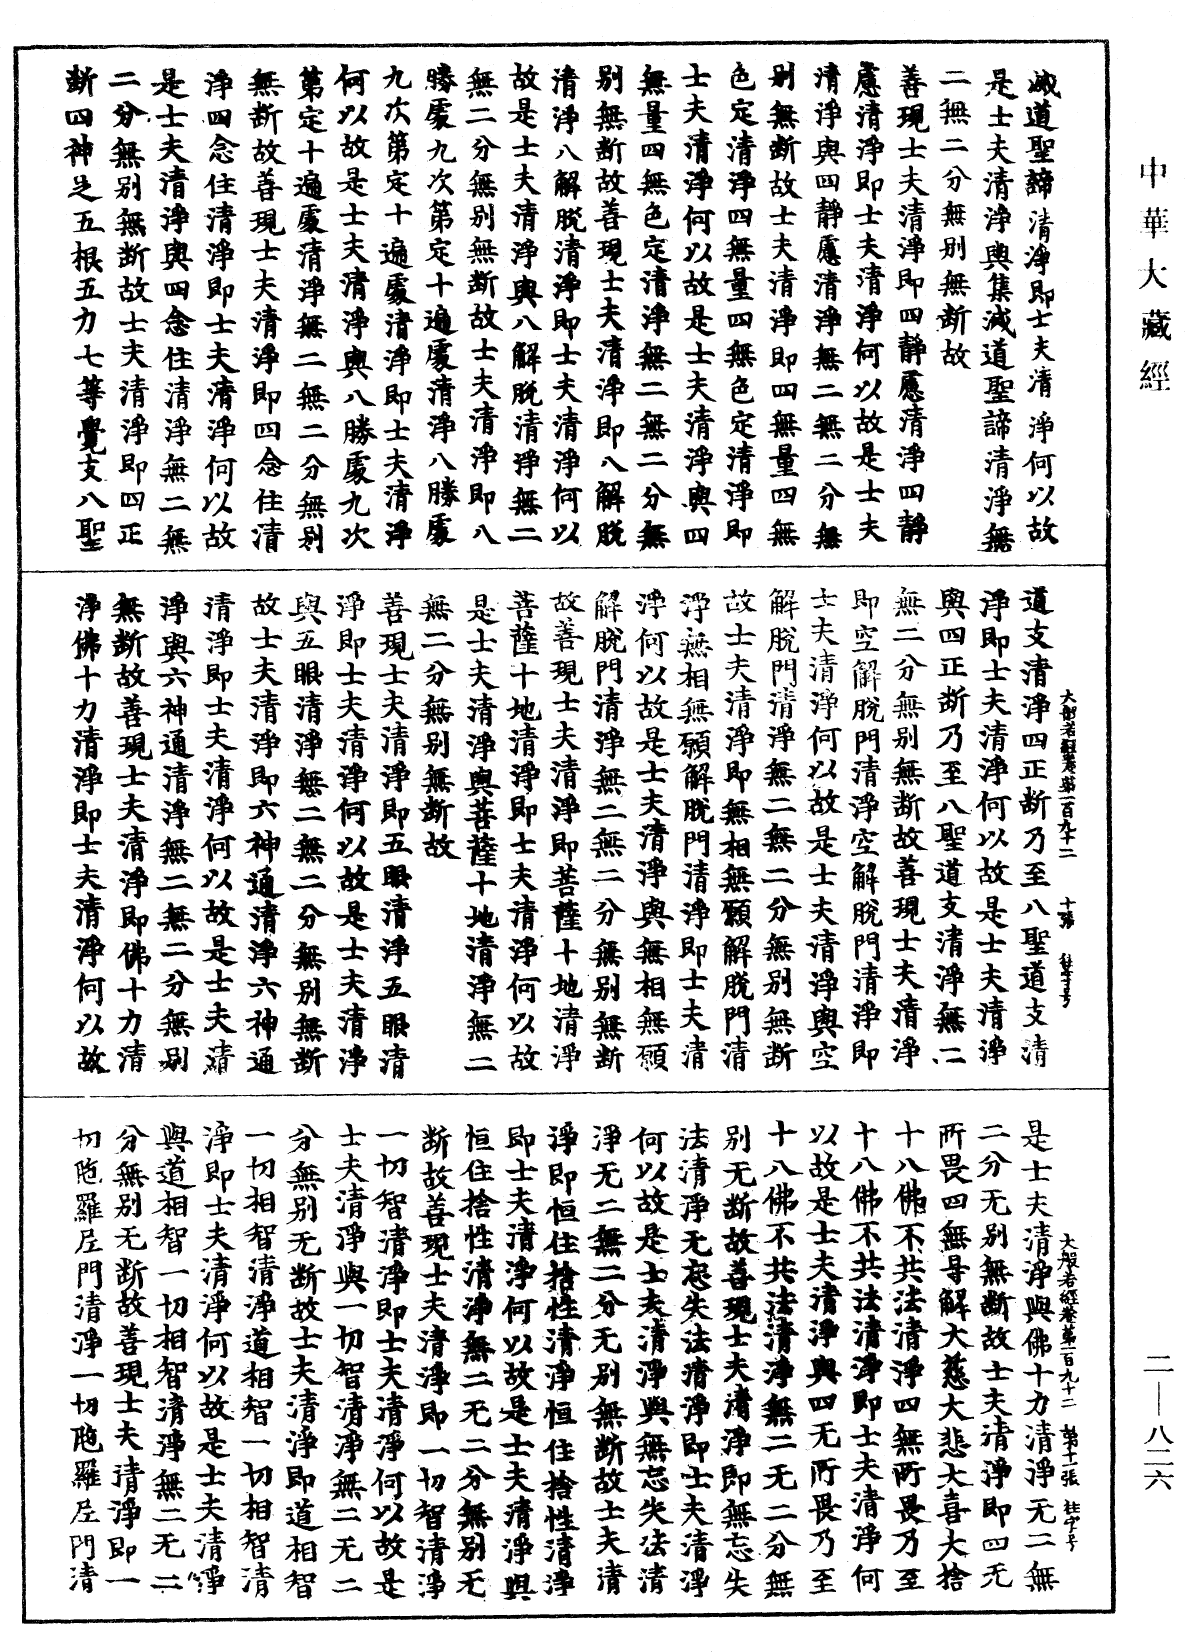 中華大藏經
滅道聖諦清淨即士夫清淨何以故
是士夫清淨與集滅道聖諦清淨無
二無二分無别無断故
善現士夫清淨即四靜慮清淨四靜
慮清淨即士夫清淨何以故是士夫
清淨與四靜慮清淨無二無二分無
别無断故士夫清淨即四無量四無
色定清淨四無量四無色定清淨即
士夫清淨何以故是士夫清淨與四
無量四無色定清淨無二無二分無
别無断故善現士夫清淨即八解脫
清淨八解脫清淨即士夫清淨何以
故是士夫清淨與八解脫清淨無二
無二分無别無断故士夫清淨即八
勝處九次第定十遍處清淨八勝處
九次第定十遍處清淨即士夫清淨
何以故是士夫清淨與八勝處九次
第定十遍處清淨無二無二分無别
無断故善現士夫清淨即四念住清
淨四念住清淨即士夫清淨何以故
是士夫清淨與四念住清淨無二無
二分無别無断故士夫清淨即四正
断四神足五根五力七等覺支八聖
大般若經卷第一百九十二 十張 往字号
道支清淨四正断乃至八聖道支清
淨即士夫清淨何以故是士夫清淨
與四正断乃至八聖道支清淨無二
無二分無别無断故善現士夫清淨
即空解脫門清淨空解脫門清淨即
士夫清淨何以故是士夫清淨與空
解脫門清淨無二無二分無别無断
故士夫清淨即無相無願解脫門清
淨無相無願解脫門清淨即士夫清
淨何以故是士夫清淨與無相無願
解脫門清淨無二無二分無别無断
故善現士夫清淨即菩薩十地清淨
菩薩十地清淨即士夫清淨何以故
是士夫清淨與菩薩十地清淨無二
無二分無别無断故
善現士夫清淨即五眼清淨五眼清
淨即士夫清淨何以故是士夫清淨
與五眼清淨無二無二分無别無断
故士夫清淨即六神通清淨六神通
清淨即士夫清淨何以故是士夫清
淨與六神通清淨無二無二分無别
無断故善現士夫清淨即佛十力清
淨佛十力清淨即士夫清淨何以故
大般若經卷第一百九十二 第十一張 往字号
是士夫清淨與佛十力清淨无二無
二分无别無断故士夫清淨即四无
所畏四無导解大慈大悲大喜大捨
十八佛不共法清淨四無所畏乃至
十八佛不共法清淨即士夫清淨何
以故是士夫清淨與四无所畏乃至
十八佛不共法清淨無二无二分無
别无断故善現士夫清淨即無忘失
法清淨无忘失法清淨即士夫清淨
何以故是士夫清淨與無忘失法清
淨无二無二分无别無断故士夫清
淨即恒住捨性清淨恒住捨性清淨
即士夫清淨何以故是士夫清淨與
恒住捨性清淨無二无二分無别无
断故善現士夫清淨即一切智清淨
一切智清淨即士夫清淨何以故是
士夫清淨與一切智清淨無二无二
分無别无断故士夫清淨即道相智
一切相智清淨道相智一切相智清
淨即士夫清淨何以故是士夫清淨
與道相智一切相智清淨無二无二
分無别无断故善現士夫清淨即一
切陁羅尼門清淨一切陁羅尼門清
二—八二六